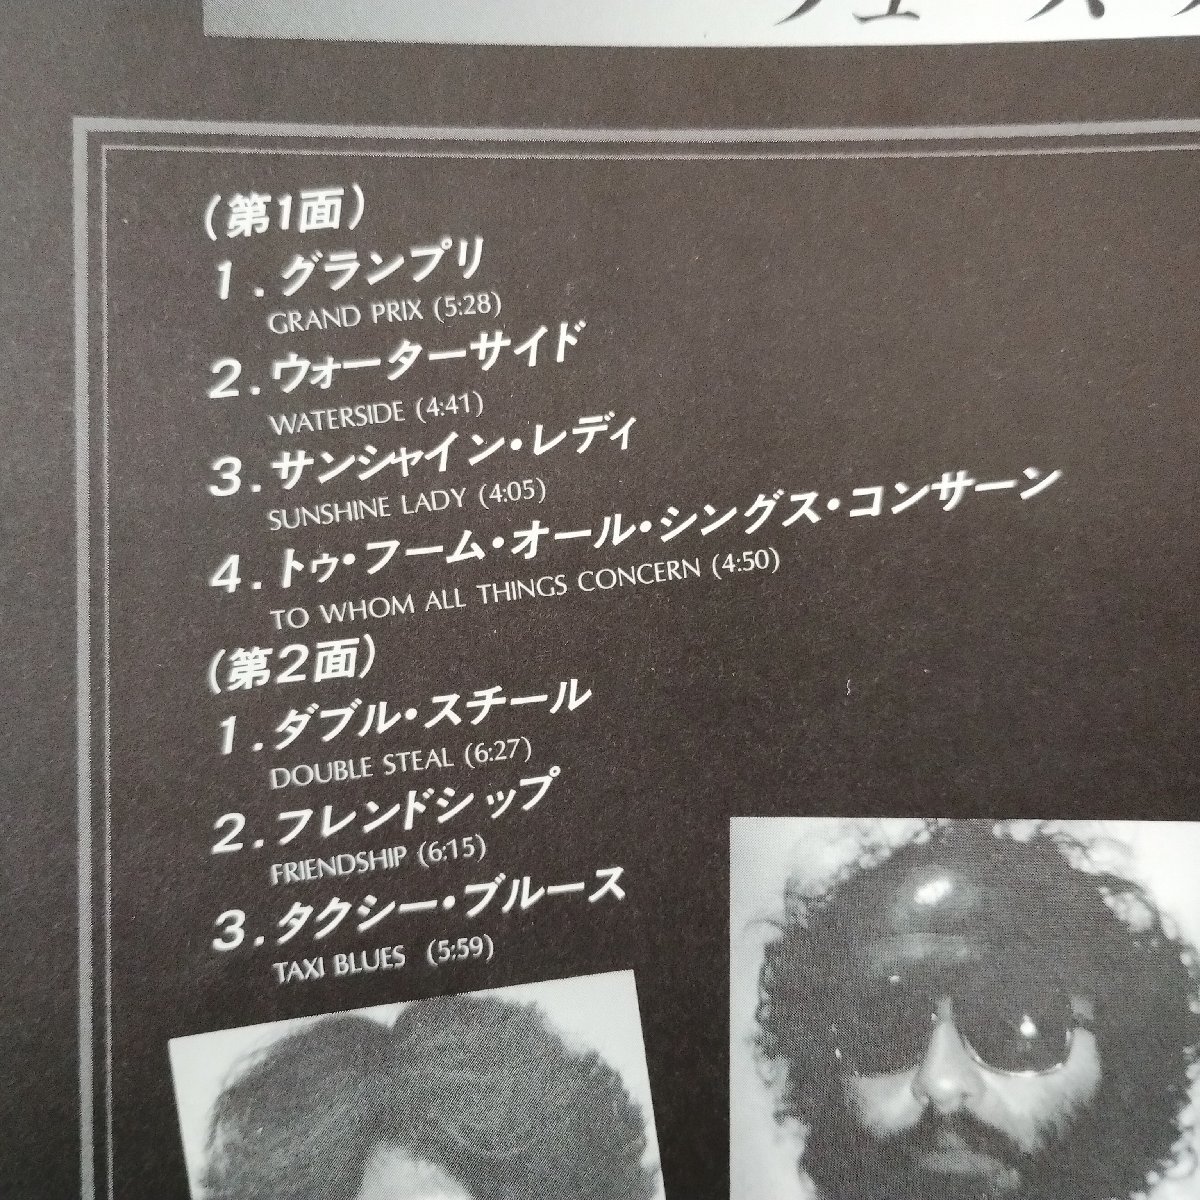 (第1面)
1.グランプリ
GRAND PRIX (5:28)
2.ウォーターサイド
WATERSIDE (4:41)
3.サンシャイン・レディ
SUNSHINE LADY (4:05)
4.トゥ・フーム・オール・シングス・コンサーン
TO WHOM ALL THINGS CONCERN (4:50)
(第2面)
1.ダブル・スチール
DOUBLE STEAL (6:27)
2.フレンドシップ
FRIENDSHIP (6:15)
3.タクシー・ブルース
TAXI BLUES (5:59)